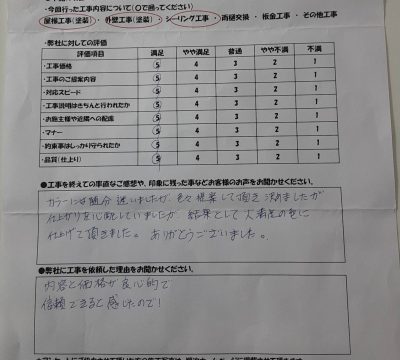 ・今回行った工事内容について(〇で囲ってください)
屋根工事(塗装)・外壁工事(塗装)・シーリング工事・雨樋交換・板金工事・その他工事
●弊社に対しての評価
評価項目 満足 やや満足 普通 やや不満 不満
・工事価格 5 4 3 2 1
・工事のご提案内容 5 4 3 2 1
・対応スピード 5 4 3 2 1
・工事説明はきちんと行われたか 5 4 3 2 1
・お施主様や近隣への配慮 5 4 3 2 1
・マナー 5 4 3 2 1
・約束事はしっかり守られたか 5 4 3 2 1
・品質(仕上り) 5 4 3 2 1
●工事を終えての率直なご感想や、印象に残った事などお客様のお声をお聞かせください。
カラーには随分迷いましたが、色々提案して頂き決めましたが
仕上がりを心配していましたが、結果として大満足の色に
仕上げて頂きました。ありがとうございました。
●弊社に工事を依頼した理由をお聞かせください。
内容と価格が良心的で
信頼できると感じたので!